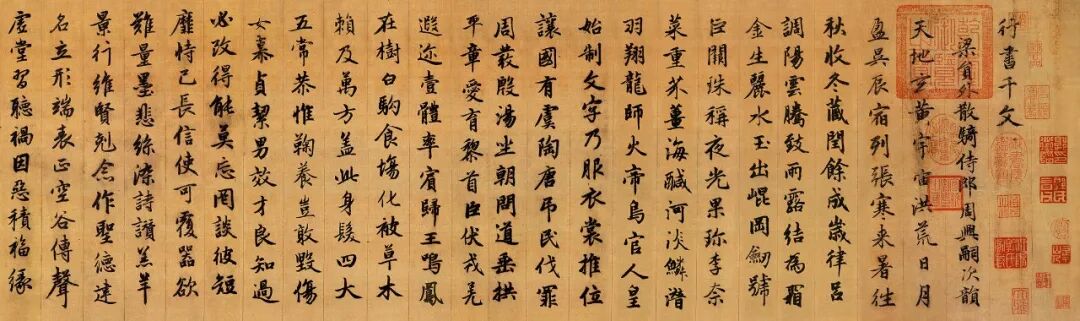 行書千文
梁員外散騎侍郎周興嗣次韻
天地玄黃宇宙洪荒日月
盈昃辰宿列張寒来暑往
秋收冬藏閏餘成歲律呂
調陽雲騰致雨露結為霜
金生麗水玉出崐岡劒號
巨闕珠稱夜光果珍李柰
菜重芥薑海醎河淡鱗潛
羽翔龍師火帝鳥官人皇
始制文字乃服衣裳推位
讓國有虞陶唐弔民伐罪
周發殷湯坐朝問道垂拱
平章愛育黎首臣伏戎羌
遐迩壹體率賓歸王鳴鳳
在樹白駒食場化被草木
賴及萬方蓋此身髮四大
五常恭惟鞠養豈敢毀傷
女慕貞潔男效才良知過
必改得能莫忘罔談彼短
靡恃己長信使可覆器欲
難量墨悲絲染詩讚羔羊
景行維賢剋念作聖德建
名立形端表正空谷傳聲
虛堂習聽禍因惡積福緣